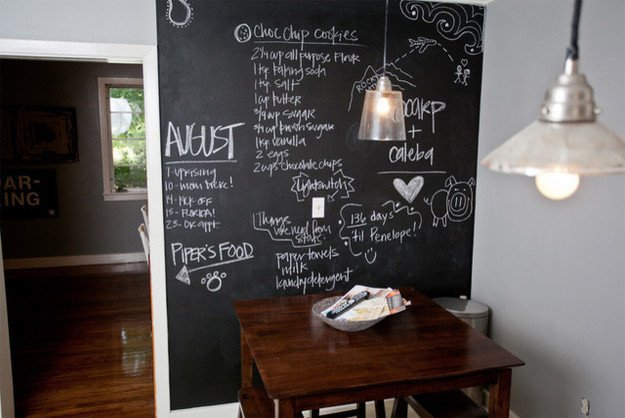 Choc Chip cookies
2 1/4 cup all purpose flour
1 tsp baking soda
1 tsp salt
1 cup butter
3/4 cup sugar
3/4 cup brown sugar
1 tsp vanilla
2 eggs
2 cups chocolate chips
lightswitch
AUGUST
7 - uprising
10 - mom here!
14 - kick off
15 - FLORIDA!
23 - DR appt
PIPER'S FOOD
Things
we need from
store
paper towels
milk
laundry detergent
ROCKY
+
caleba
136 days
'til Penelope!
AR-
KING